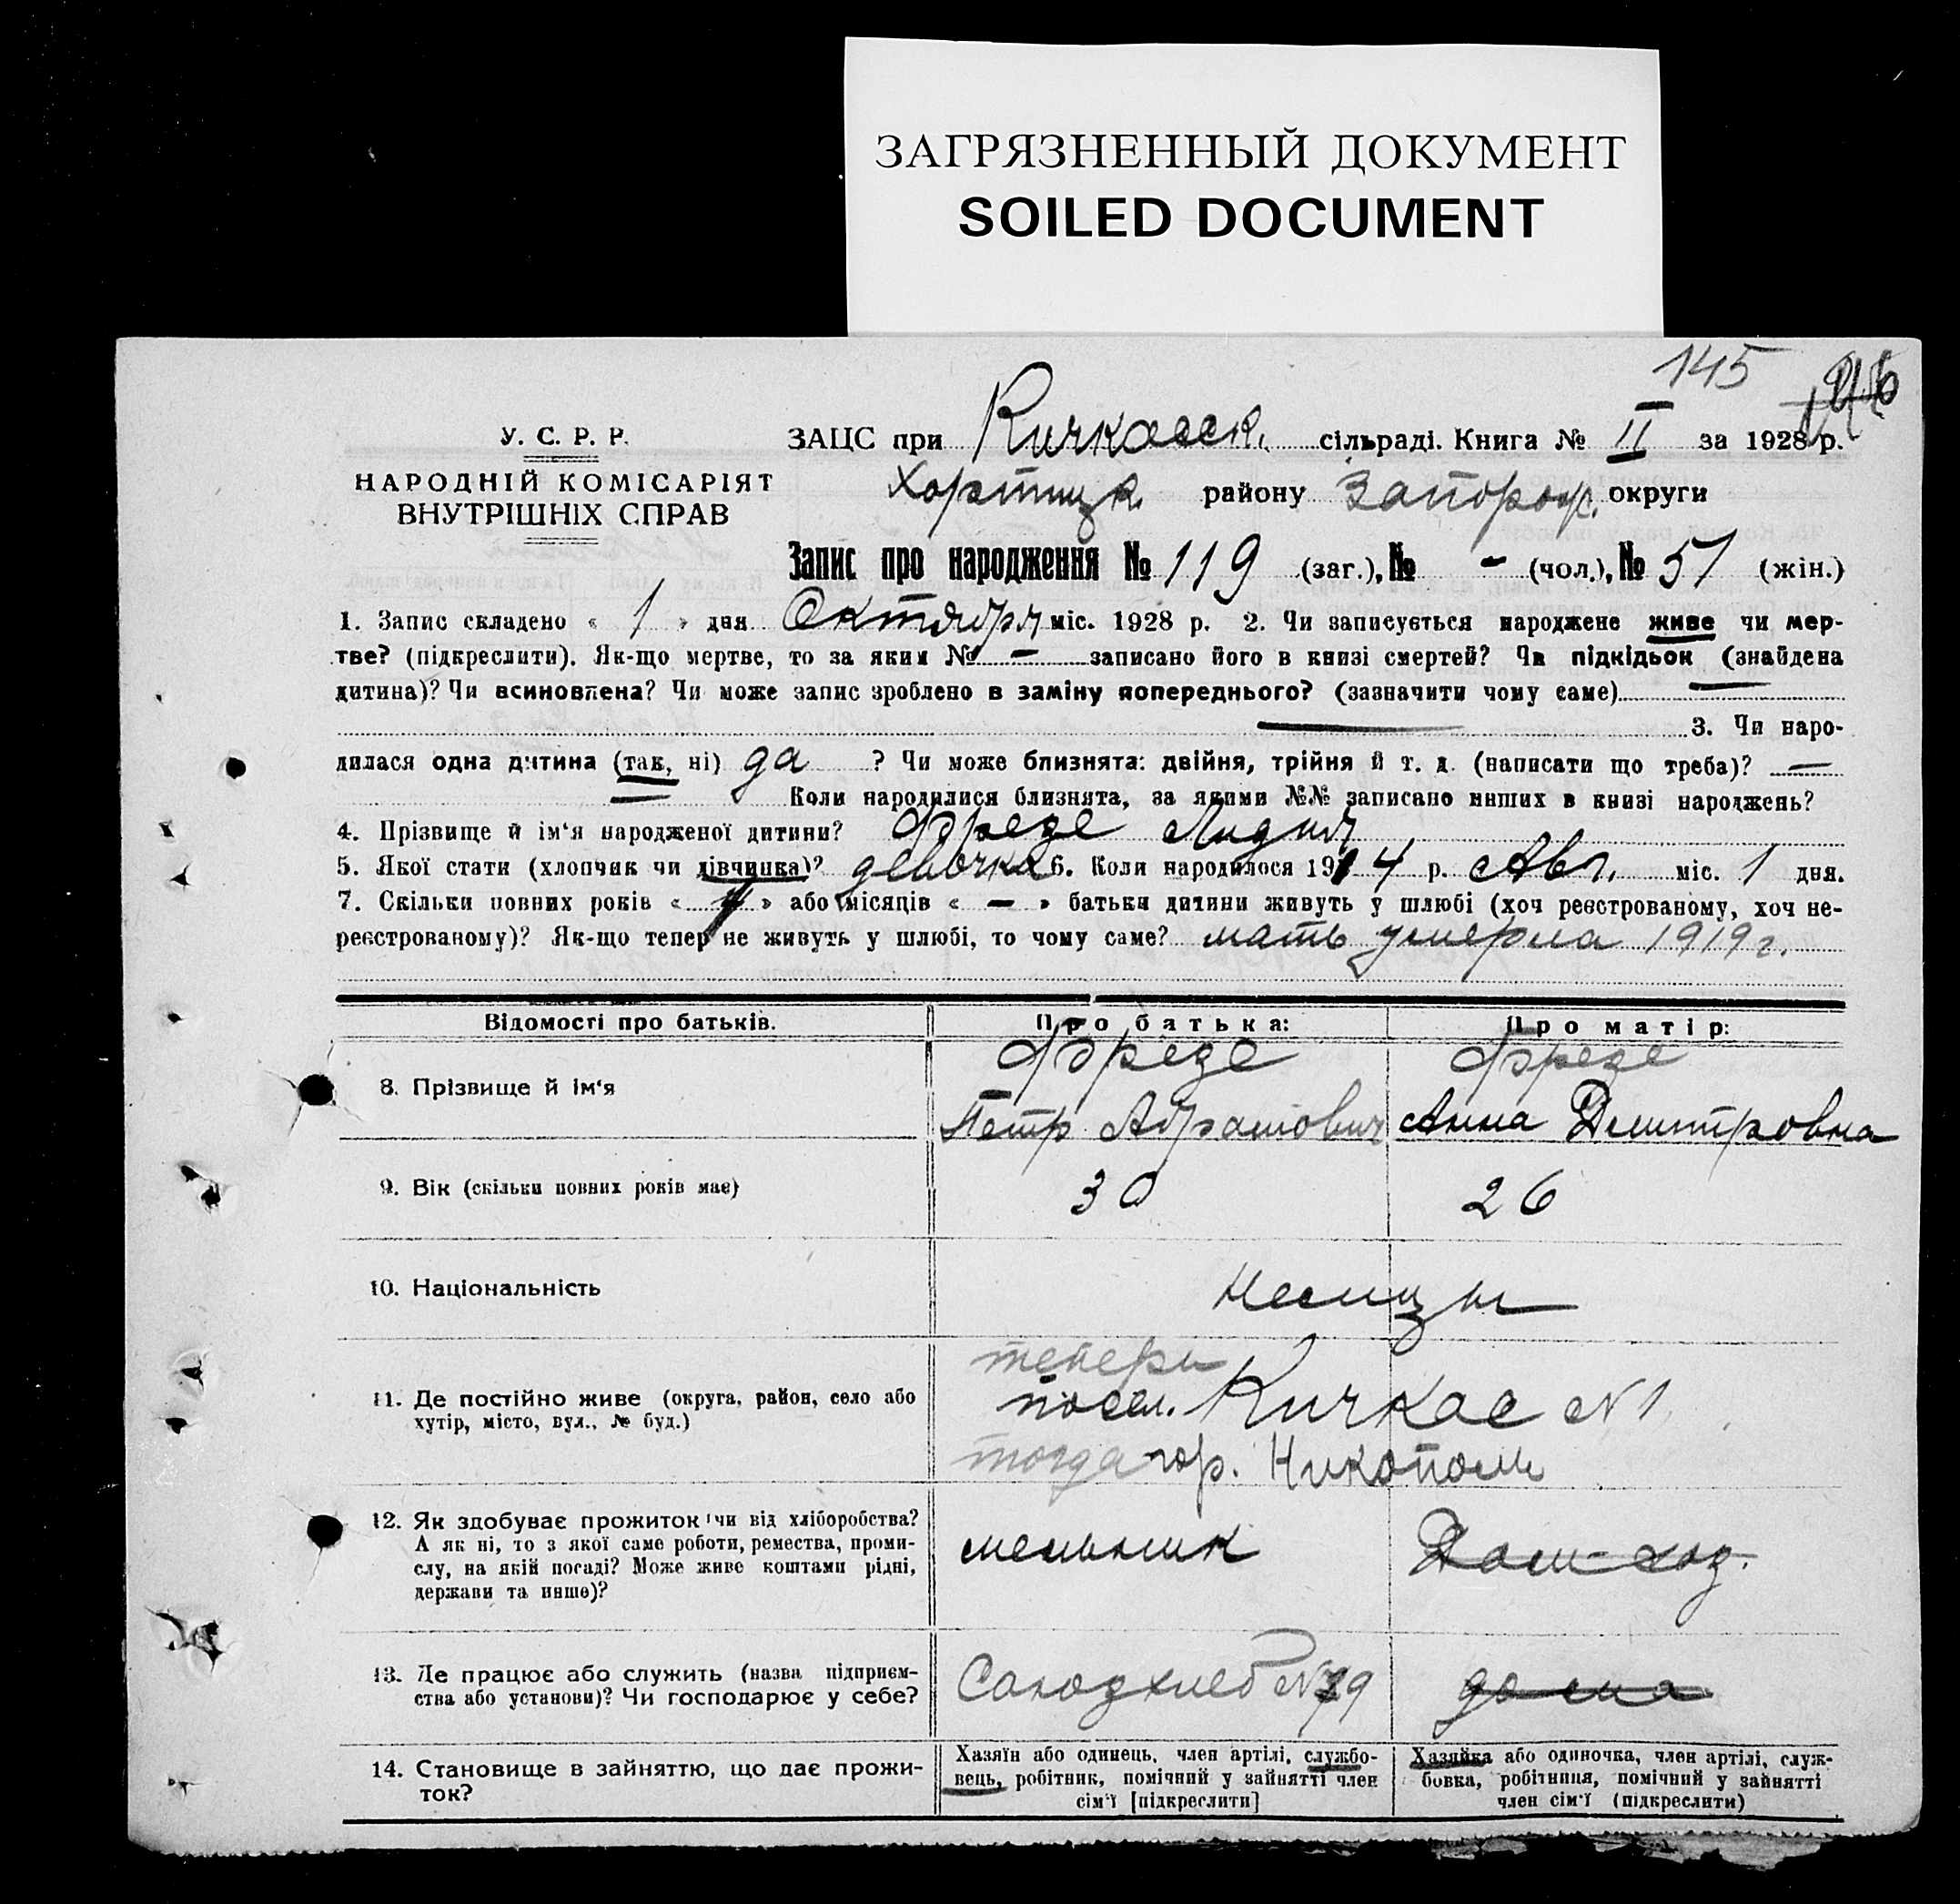 ЗАГРЯЗНЕННЫЙ ДОКУМЕНТ
SOILED DOCUMENT
145
У. С. Р. Р.
НАРОДНІЙ КОМІСАРІЯТ
ВНУТРІШНІХ СПРАВ
ЗАЦС при Кичкасск. сільраді. Книга № II за 1928 р.
Хортицк. району Запорож. округи
Запис про народження № 119 (заг.), № - (чол.), № 51 (жін.)
1. Запис складено « 1 » дня Октября міс. 1928 р. 2. Чи записується народжене живе чи мер-
тве? (підкреслити). Як-що мертве, то за яким № — записано його в книзі смертей? Чи підкідьок (знайдена
дитина)? Чи всиновлена? Чи може запис зроблено в заміну попереднього? (зазначити чому саме) —
— 3. Чи наро-
дилася одна дитина (так, ні) да ? Чи може близнята: двійня, трійня й т. д. (написати що треба)? —
— Коли народилися близнята, за якими №№ записано инших в книзі народжень?
4. Прізвище й ім‘я народженої дитини? Фрезе Лидия
5. Якої стати (хлопчик чи дівчинка)? девочка 6. Коли народилося 1914 р. Авг. міс. 1 дня.
7. Скільки повних років « 4 » або місяців « — » батьки дитини живуть у шлюбі (хоч реєстрованому, хоч не-
реєстрованому)? Як-що тепер не живуть у шлюбі, то чому саме? мать умерла 1919 г.
Відомості про батьків. Про батька: Про матір:
Фрезе Фрезе
8. Прізвище й ім‘я
Петр Абрамович Анна Дмитровна
9. Вік (скільки повних років має) 30 26
10. Національність Немцы
теперь
11. Де постійно живе (округа, район, село або посел. Кичкас №1
хутір, місто, вул., № буд.)
тогда гор. Никополь
12. Як здобуває прожиток чи від хліборобства?
А як ні, то з якої саме роботи, ремества, проми- мельник Дом-хоз.
слу, на якій посаді? Може живе коштами рідні,
держави та инше)?
13. Де працює або служить (назва підприєм- Союзхлеб № 79 дома
ства або установи)? Чи господарює у себе?
14. Становище в зайняттю, що дає прожи-
ток?
Хазяїн або одинець, член артілі, службо-
вець, робітник, помічний у зайнятті член
сім‘ї [підкреслити]
Хазяйка або одиночка, член артілі, служ-
бовка, робітниця, помічний у зайнятті
член сім‘ї (підкреслити)